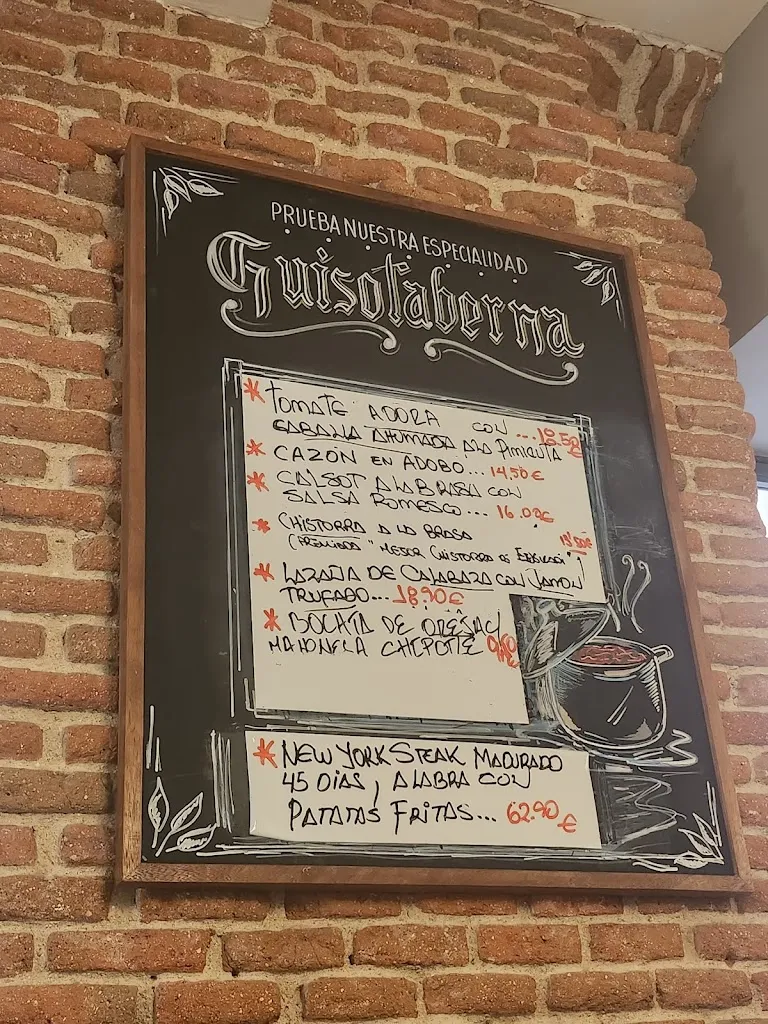 PRUEBA NUESTRA ESPECIALIDAD
Guisotaberna
* TOMATE ADORA CON ... 18.50 €
CABALLA AHUMADA A LA PIMIENTA
* CAZÓN EN ADOBO... 14,50 €
* CALSOT A LA BRASA CON
SALSA ROMESCO... 16.00€
* CHISTORRA A LA BRASA
(PREMIADA "MEJOR CHISTORRA DE
* LAZAÑA DE CALABAZA CON JAMON
TRUFADO... 18.90€
* BOCATA DE OREJA C/
MAHONESA CHIPOTLE
* NEW YORK STEAK MADURADO
45 DIAS, A LA BRA CON
PATATAS FRITAS... 62.90 €